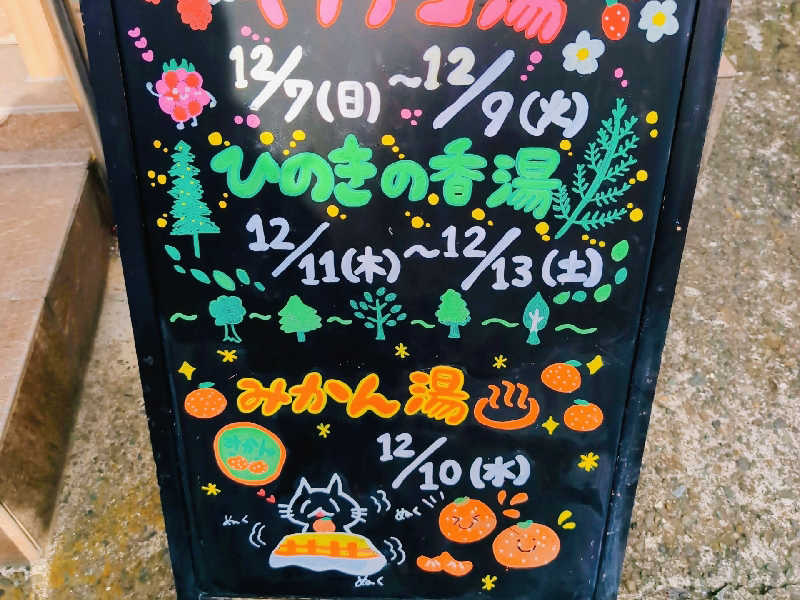 12/7(日)～12/9(火)
ひのきの香湯
12/11(木)～12/13(土)
みかん湯
12/10(水)
みかん
ぬく
ぬく
ぬく